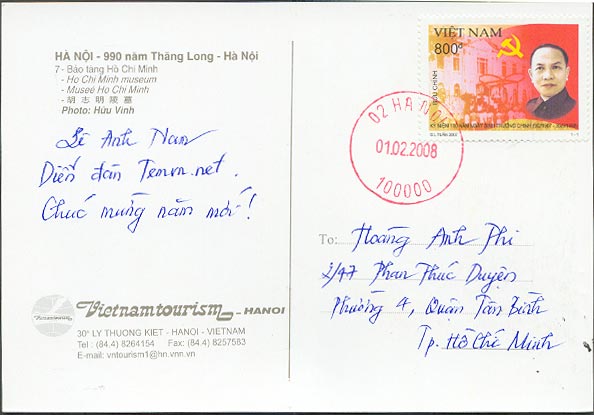 HÀ NỘI - 990 năm Thăng Long - Hà Nội
7 - Bảo tàng Hồ Chí Minh
- Ho Chi Minh museum
- Musée Ho Chi Minh
- 胡志明陵墓
Photo: Hữu Vinh
Lê Anh Nam
Diễn đàn Temvn.net.
Chúc mừng năm mới!
Vietnamtourism - HANOI
30A LY THUONG KIET - HANOI - VIETNAM
Tel : (84.4) 8264154 Fax: (84.4) 8257583
E-mail: vntourism1@hn.vnn.vn
VIỆT NAM
800đ
BƯU CHÍNH
02 HA NOI
01.02.2008
100000
To: Hoàng Anh Thi
2/47 Phan Thúc Duyện
Phường 4, Quận Tân Bình
Tp. Hồ Chí Minh